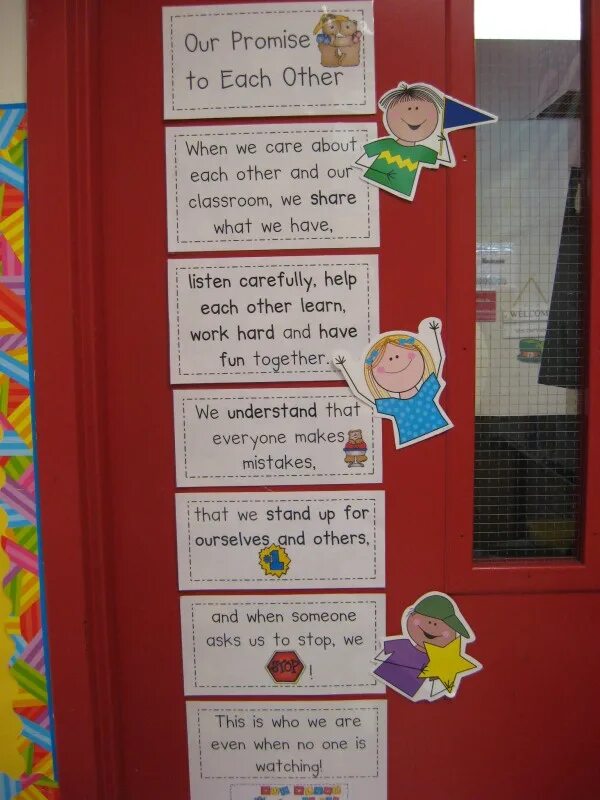 Our Promise
to Each Other
When we care about
each other and our
classroom, we share
what we have,
listen carefully, help
each other learn,
work hard and have
fun together.
We understand that
everyone makes
mistakes,
that we stand up for
ourselves and others,
#1
and when someone
asks us to stop, we
STOP !
This is who we are
even when no one is
watching!
WELCOME